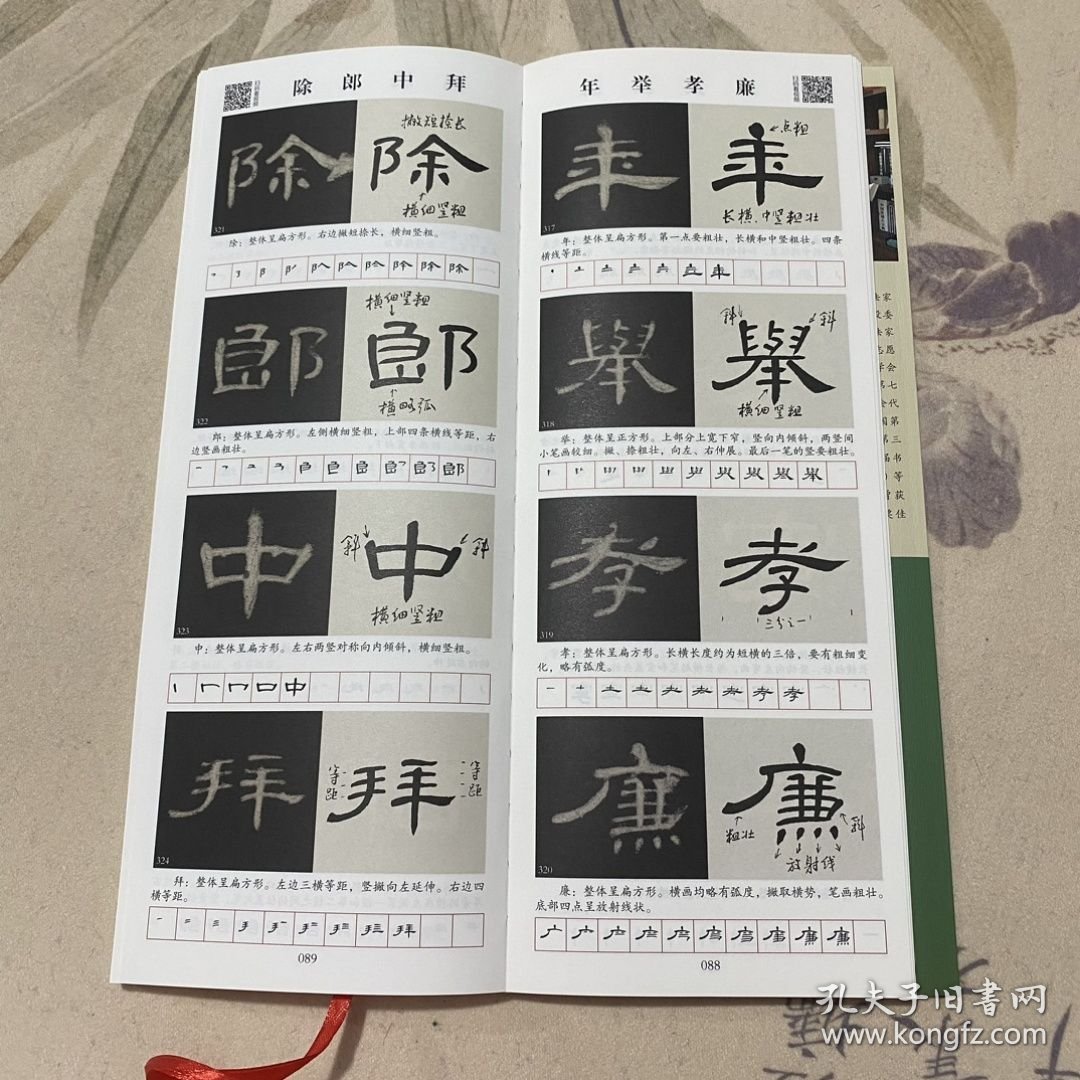 年 举 孝 廉
扫码看视频
年
点粗
长横、中竖粗壮
317
年：整体呈扁方形。第一点要粗壮，长横和中竖粗壮。四条
横线等距。
舉
斜
斜
横细竖粗
318
举：整体呈正方形。上部分上宽下窄，竖向内倾斜，两竖间
小笔画较细。撇、捺粗壮，向左、右伸展。最后一笔的竖要粗壮。
孝
三分之一
319
孝：整体呈扁方形。长横长度约为短横的三倍，要有粗细变
化，略有弧度。
廉
粗壮
斜
放射线
320
廉：整体呈扁方形。横画均略有弧度，撇取横势，笔画粗壮。
底部四点呈放射线状。
088
除 郎 中 拜
扫码看视频
除
撇短捺长
横细竖粗
321
除：整体呈扁方形。右边撇短捺长，横细竖粗。
郎
横细竖粗
横略弧
322
郎：整体呈扁方形。左侧横细竖粗，上部四条横线等距，右
边竖画粗壮。
中
斜
斜
横细竖粗
323
中：整体呈扁方形。左右两竖对称向内倾斜，横细竖粗。
拜
等距
等距
324
拜：整体呈扁方形。左边三横等距，竖撇向左延伸。右边四
横等距。
089
孔夫子旧书网
www.kongfz.com